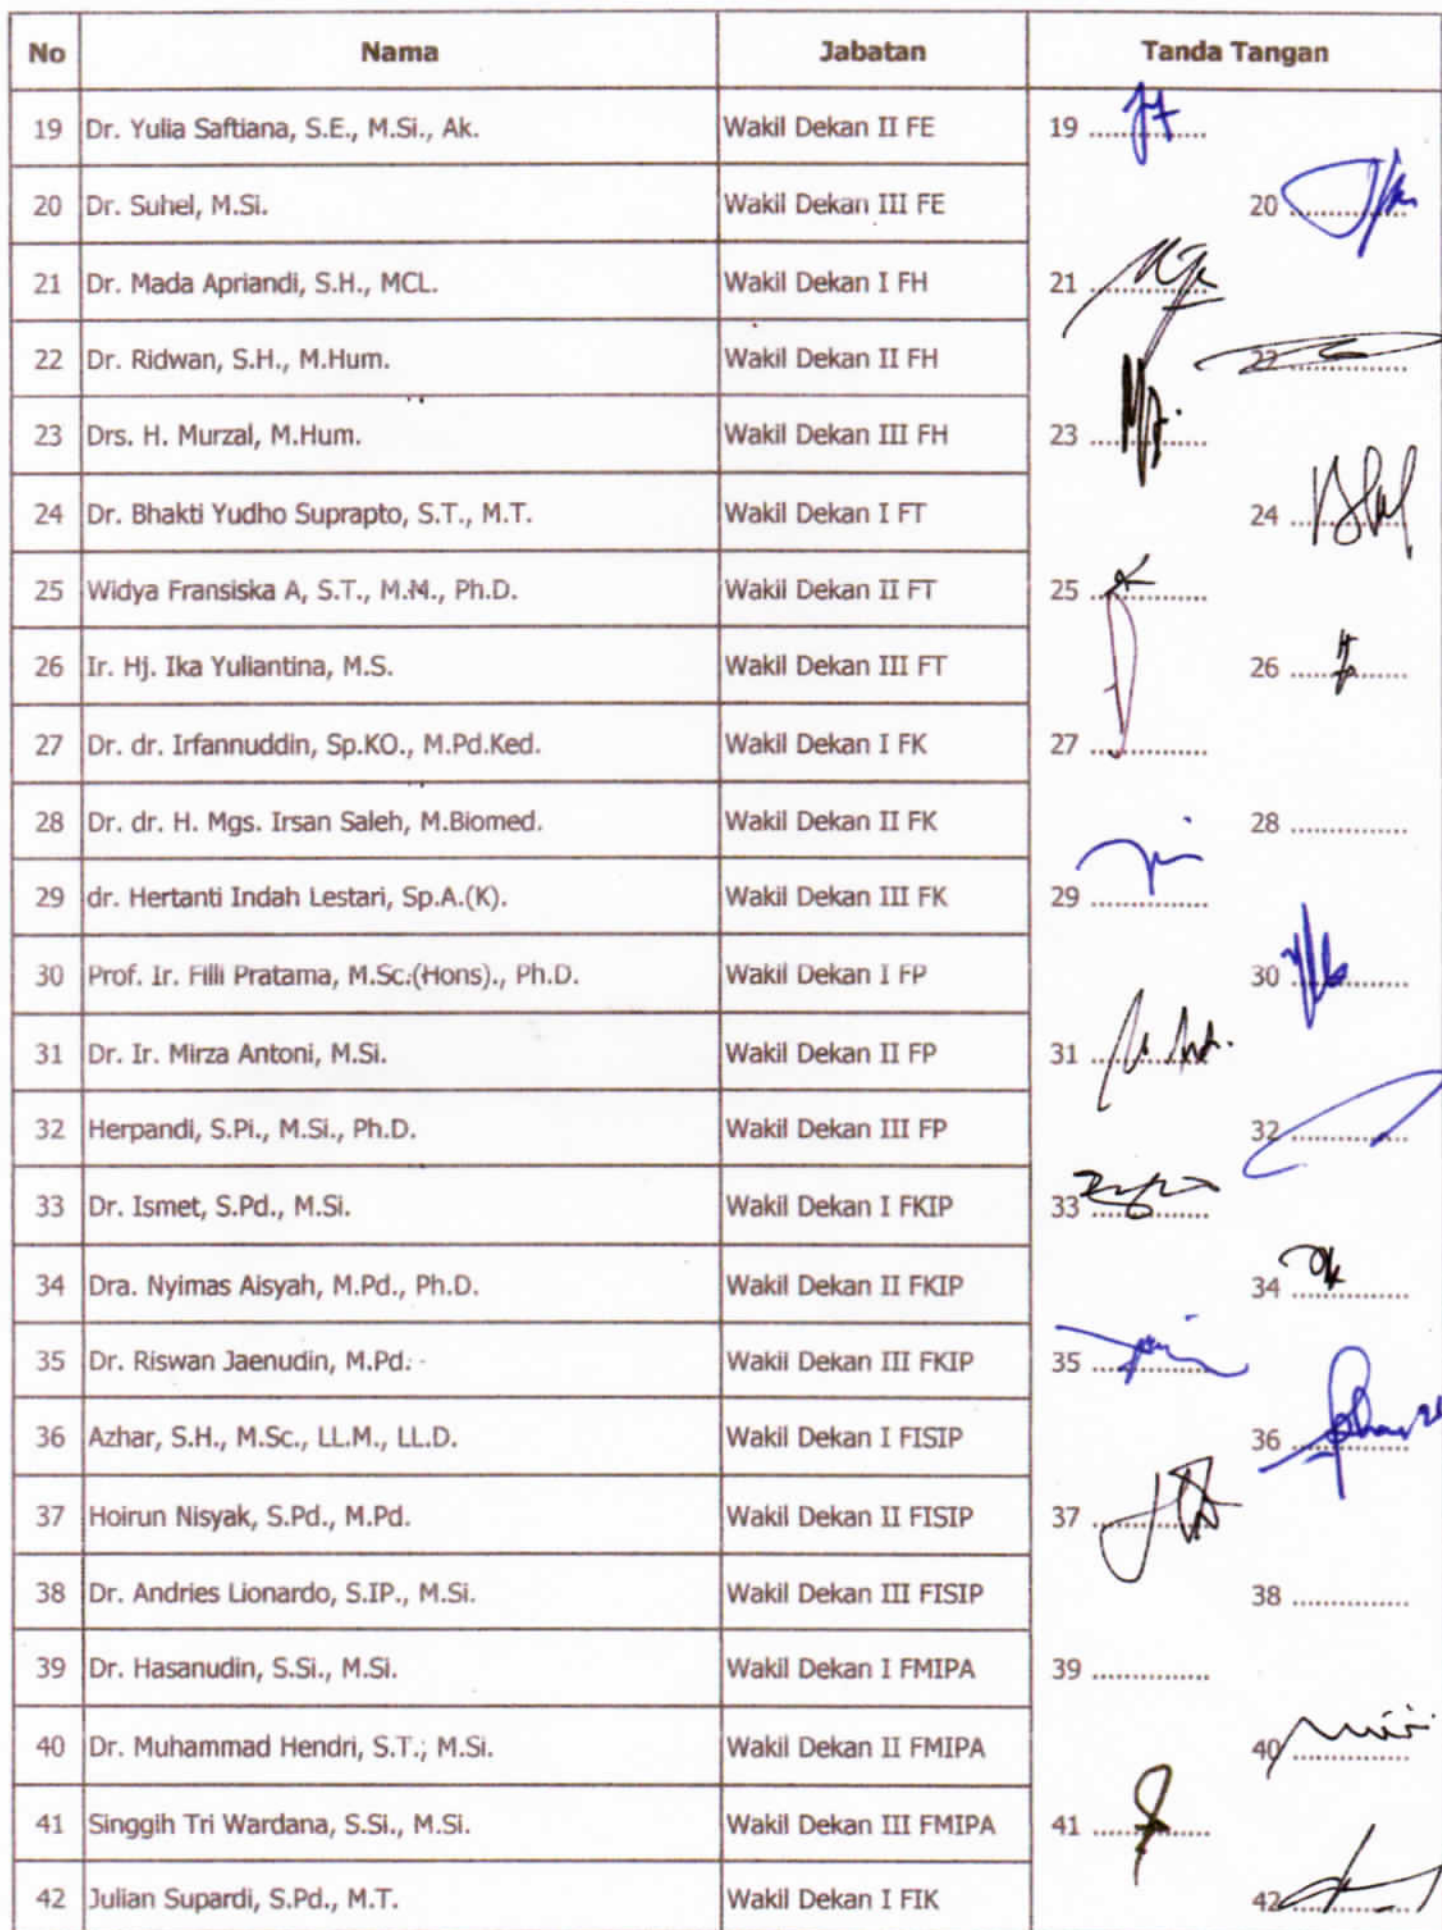 No Nama Jabatan Tanda Tangan
19 Dr. Yulia Saftiana, S.E., M.Si., Ak. Wakil Dekan II FE 19 ..............
20 Dr. Suhel, M.Si. Wakil Dekan III FE 20 ..............
21 Dr. Mada Apriandi, S.H., MCL. Wakil Dekan I FH 21 ..............
22 Dr. Ridwan, S.H., M.Hum. Wakil Dekan II FH 22 ..............
23 Drs. H. Murzal, M.Hum. Wakil Dekan III FH 23 ..............
24 Dr. Bhakti Yudho Suprapto, S.T., M.T. Wakil Dekan I FT 24 ..............
25 Widya Fransiska A, S.T., M.M., Ph.D. Wakil Dekan II FT 25 ..............
26 Ir. Hj. Ika Yuliantina, M.S. Wakil Dekan III FT 26 ..............
27 Dr. dr. Irfannuddin, Sp.KO., M.Pd.Ked. Wakil Dekan I FK 27 ..............
28 Dr. dr. H. Mgs. Irsan Saleh, M.Biomed. Wakil Dekan II FK 28 ..............
29 dr. Hertanti Indah Lestari, Sp.A.(K). Wakil Dekan III FK 29 ..............
30 Prof. Ir. Filli Pratama, M.Sc.(Hons)., Ph.D. Wakil Dekan I FP 30 ..............
31 Dr. Ir. Mirza Antoni, M.Si. Wakil Dekan II FP 31 ..............
32 Herpandi, S.Pi., M.Si., Ph.D. Wakil Dekan III FP 32 ..............
33 Dr. Ismet, S.Pd., M.Si. Wakil Dekan I FKIP 33 ..............
34 Dra. Nyimas Aisyah, M.Pd., Ph.D. Wakil Dekan II FKIP 34 ..............
35 Dr. Riswan Jaenudin, M.Pd. Wakil Dekan III FKIP 35 ..............
36 Azhar, S.H., M.Sc., LL.M., LL.D. Wakil Dekan I FISIP 36 ..............
37 Hoirun Nisyak, S.Pd., M.Pd. Wakil Dekan II FISIP 37 ..............
38 Dr. Andries Lionardo, S.IP., M.Si. Wakil Dekan III FISIP 38 ..............
39 Dr. Hasanudin, S.Si., M.Si. Wakil Dekan I FMIPA 39 ..............
40 Dr. Muhammad Hendri, S.T., M.Si. Wakil Dekan II FMIPA 40 ..............
41 Singgih Tri Wardana, S.Si., M.Si. Wakil Dekan III FMIPA 41 ..............
42 Julian Supardi, S.Pd., M.T. Wakil Dekan I FIK 42 ..............